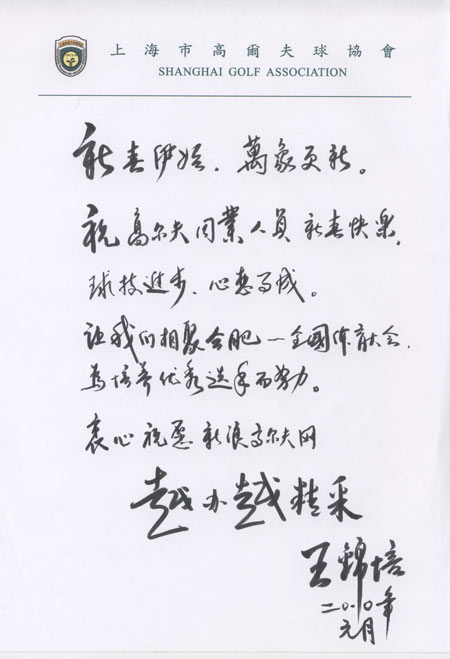 上海市高爾夫球協會
SHANGHAI GOLF ASSOCIATION
新春伊始、萬象更新。
祝高尔夫同業人员新春快樂，
球技進步、心想事成。
让我们相聚合肥一全國体育大会，
為培养优秀选手而努力。
衷心祝愿新浪高尔夫网
越办越精采
王錦培
二〇一〇年
元月